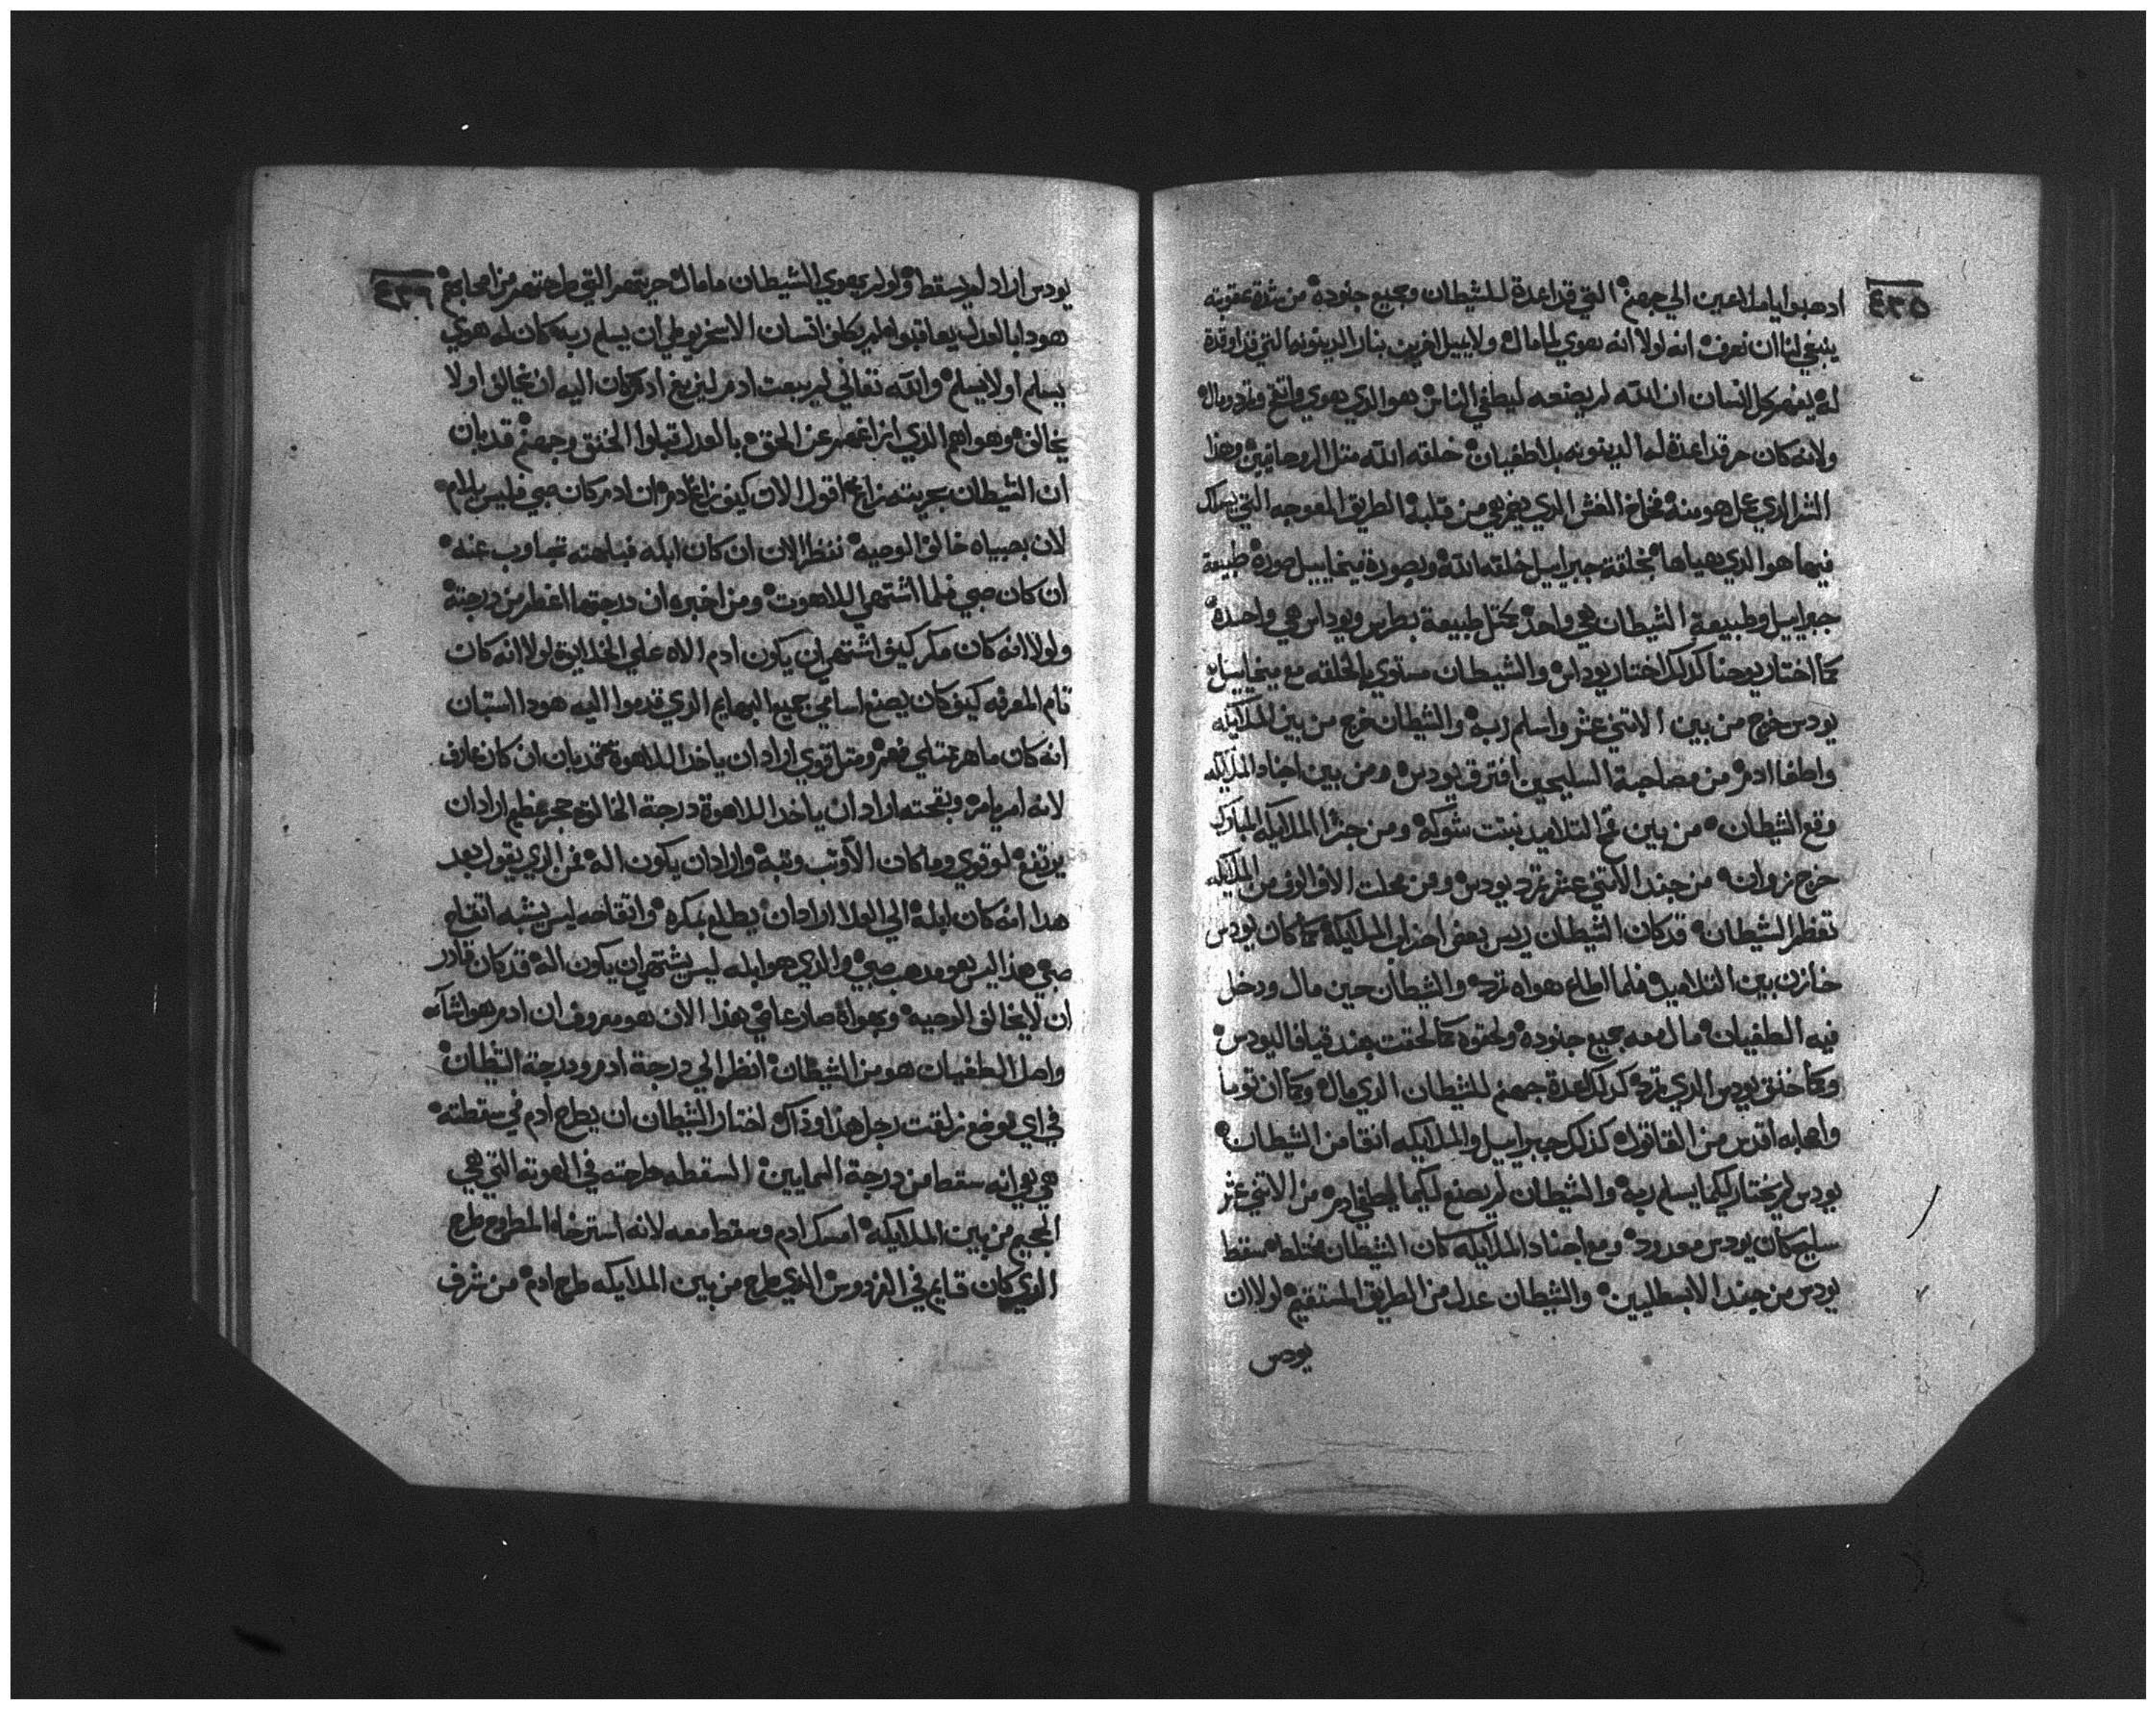 ٤٣٥
ادهبوا ياملاعين الي جهنم التي قد اعدة للشيطان وجميع جنوده من شدة عقوبته
ينبغي لنا ان نعرف انه لولا انه بهوي لما مال ولا يبيل الغربين بنار الدينونه التي قد اوقدة
له يفهم كل انسان ان الله لم يصنعه ليطغي الناس بهوا الذي يهوي واتفخ ومال
ولانه كان حر قد اعدة له الدينونه بل اطغيان خلقه الله متل الروحانيين وهذا
الشر الذي عمل هو منه الغش الذي يخرج من قلبه الطريق المعوجه التي يسلك
فيها هو الذي هياها بخلقة جبراييل خلقه الله وبصورة ميخاييل صورة طبيعة
جبراييل وطبيعة الشيطان هي واحدة متل طبيعة بطرس ويوداس هي واحدة
كما اختار يوحنا كدلك اختار يوداس والشيطان مستوي بالخلقه مع ميخاييل
يودس خرج من بين الاتني عشر واسلم ربه والشيطان خرج من بين الملايكه
واطغا ادم من مصاحبة السليحين افترق يودس ومن بين اجناد الملايكه
وقع الشيطان من بين التلاميد نبتت شوكه ومن الملايكه المبارك
خرج زوان من جند الاتني عشر تمرد يودس ومن محلت الاف الوف من الملايكه
تعظم الشيطان قد كان الشيطان ريس بعض احزاب الملايكة كما كان يودس
خازن بين التلاميد فلما اطلع بهواه تمرد والشيطان حين مال ودخل
فيه الطغيان مال معه جميع جنوده ولحقوه كما لحقت جند قيافا ليودس
وكما خنق يودس الذي تمرد كدلك اعدة جهنم للشيطان الذي مال وكما ان توما
واصحابه اقدس من القاتول كذلك جبراييل والملايكه انقا من الشيطان
يودس لم يختار ليكما يسلم ربه والشيطان لم يصنع ليكما يطغي ادم من الاتني عشر
سليح كان يودس معدود ومع اجناد الملايكه كان الشيطان مختلط سقط
يودس من جند الابسطليين والشيطان عدل من الطريق المستقيم لولا ان
يودس
٤٣٦
يودس اراد لم يسقط ولو لم يهوي الشيطان ما مال حريتهم التي طرحتهم من اصحابهم
هودا بالعدل يعاقبوا لم يكلف انسان الاسخريوطي ان يسلم ربه كان له هوي
يسلم او لا يسلم والله تعالي لم يبعت ادم ليزيغ اد كان اليه ان يخالف او لا
يخالف وهواهم الذي ازاغهم عن الحق بالعدل قبلوا الخنق وجهنم قد بان
ان الشيطان بحريته زاغ اقول الان كيف زاغ ادم ان ادم كان صبي فليس يلام
لان بصبياه خالف الوصيه ننظر الان ان كان ابله فبلاهته تجاوب عنه
ان كان صبي فلما اشتهي اللاهوت ومن اخبره ان درجتها اعظم من درجته
ولولا انه كان مكر كيف اشتهي ان يكون ادم الاه علي الخلايق لولا انه كان
تام المعرفه كيف كان يصنع اسامي جميع البهايم الذي قدموا اليه هودا استبان
انه كان ماهر ممتلي فهم ومتل قوي اراد ان ياخد اللاهوة فقد بان ان كان عارف
لانه امر يامره وبقحته اراد ان ياخد اللاهوة درجة الخالق حجر عظيم اراد ان
يرتفع لو قوي وما كان الا وتب وتبه واراد ان يكون اله فمن الذي يقول بعد
هدا انه كان ابله الي العلا اراد ان يطلع بمكره واتقاحه ليس يشبه اتقاح
صبي هذا ليس هو مدهب صبي والذي هو ابله ليس يشتهي ان يكون اله قد كان قادر
ان لا يخالف الوصيه وبهواه صار عاصي بهذا الان هو معروف ان ادم هو انشاه
واصل الطغيان هو من الشيطان انظر الي درجة ادم ودرجة الشيطان
في اي موضع زلقت رجل هذا وذاك اختار الشيطان ان يطرح ادم في سقطته
هي هي انه سقط من درجة السمايين السقطه طرحته في الهوته التي هي
الجحيم من بين الملايكه امسك ادم وسقط معه لانه استرخا المطروح طرح
الذي كان قايم في الفردوس الذي طرح من بين الملايكه طرح ادم من شرف